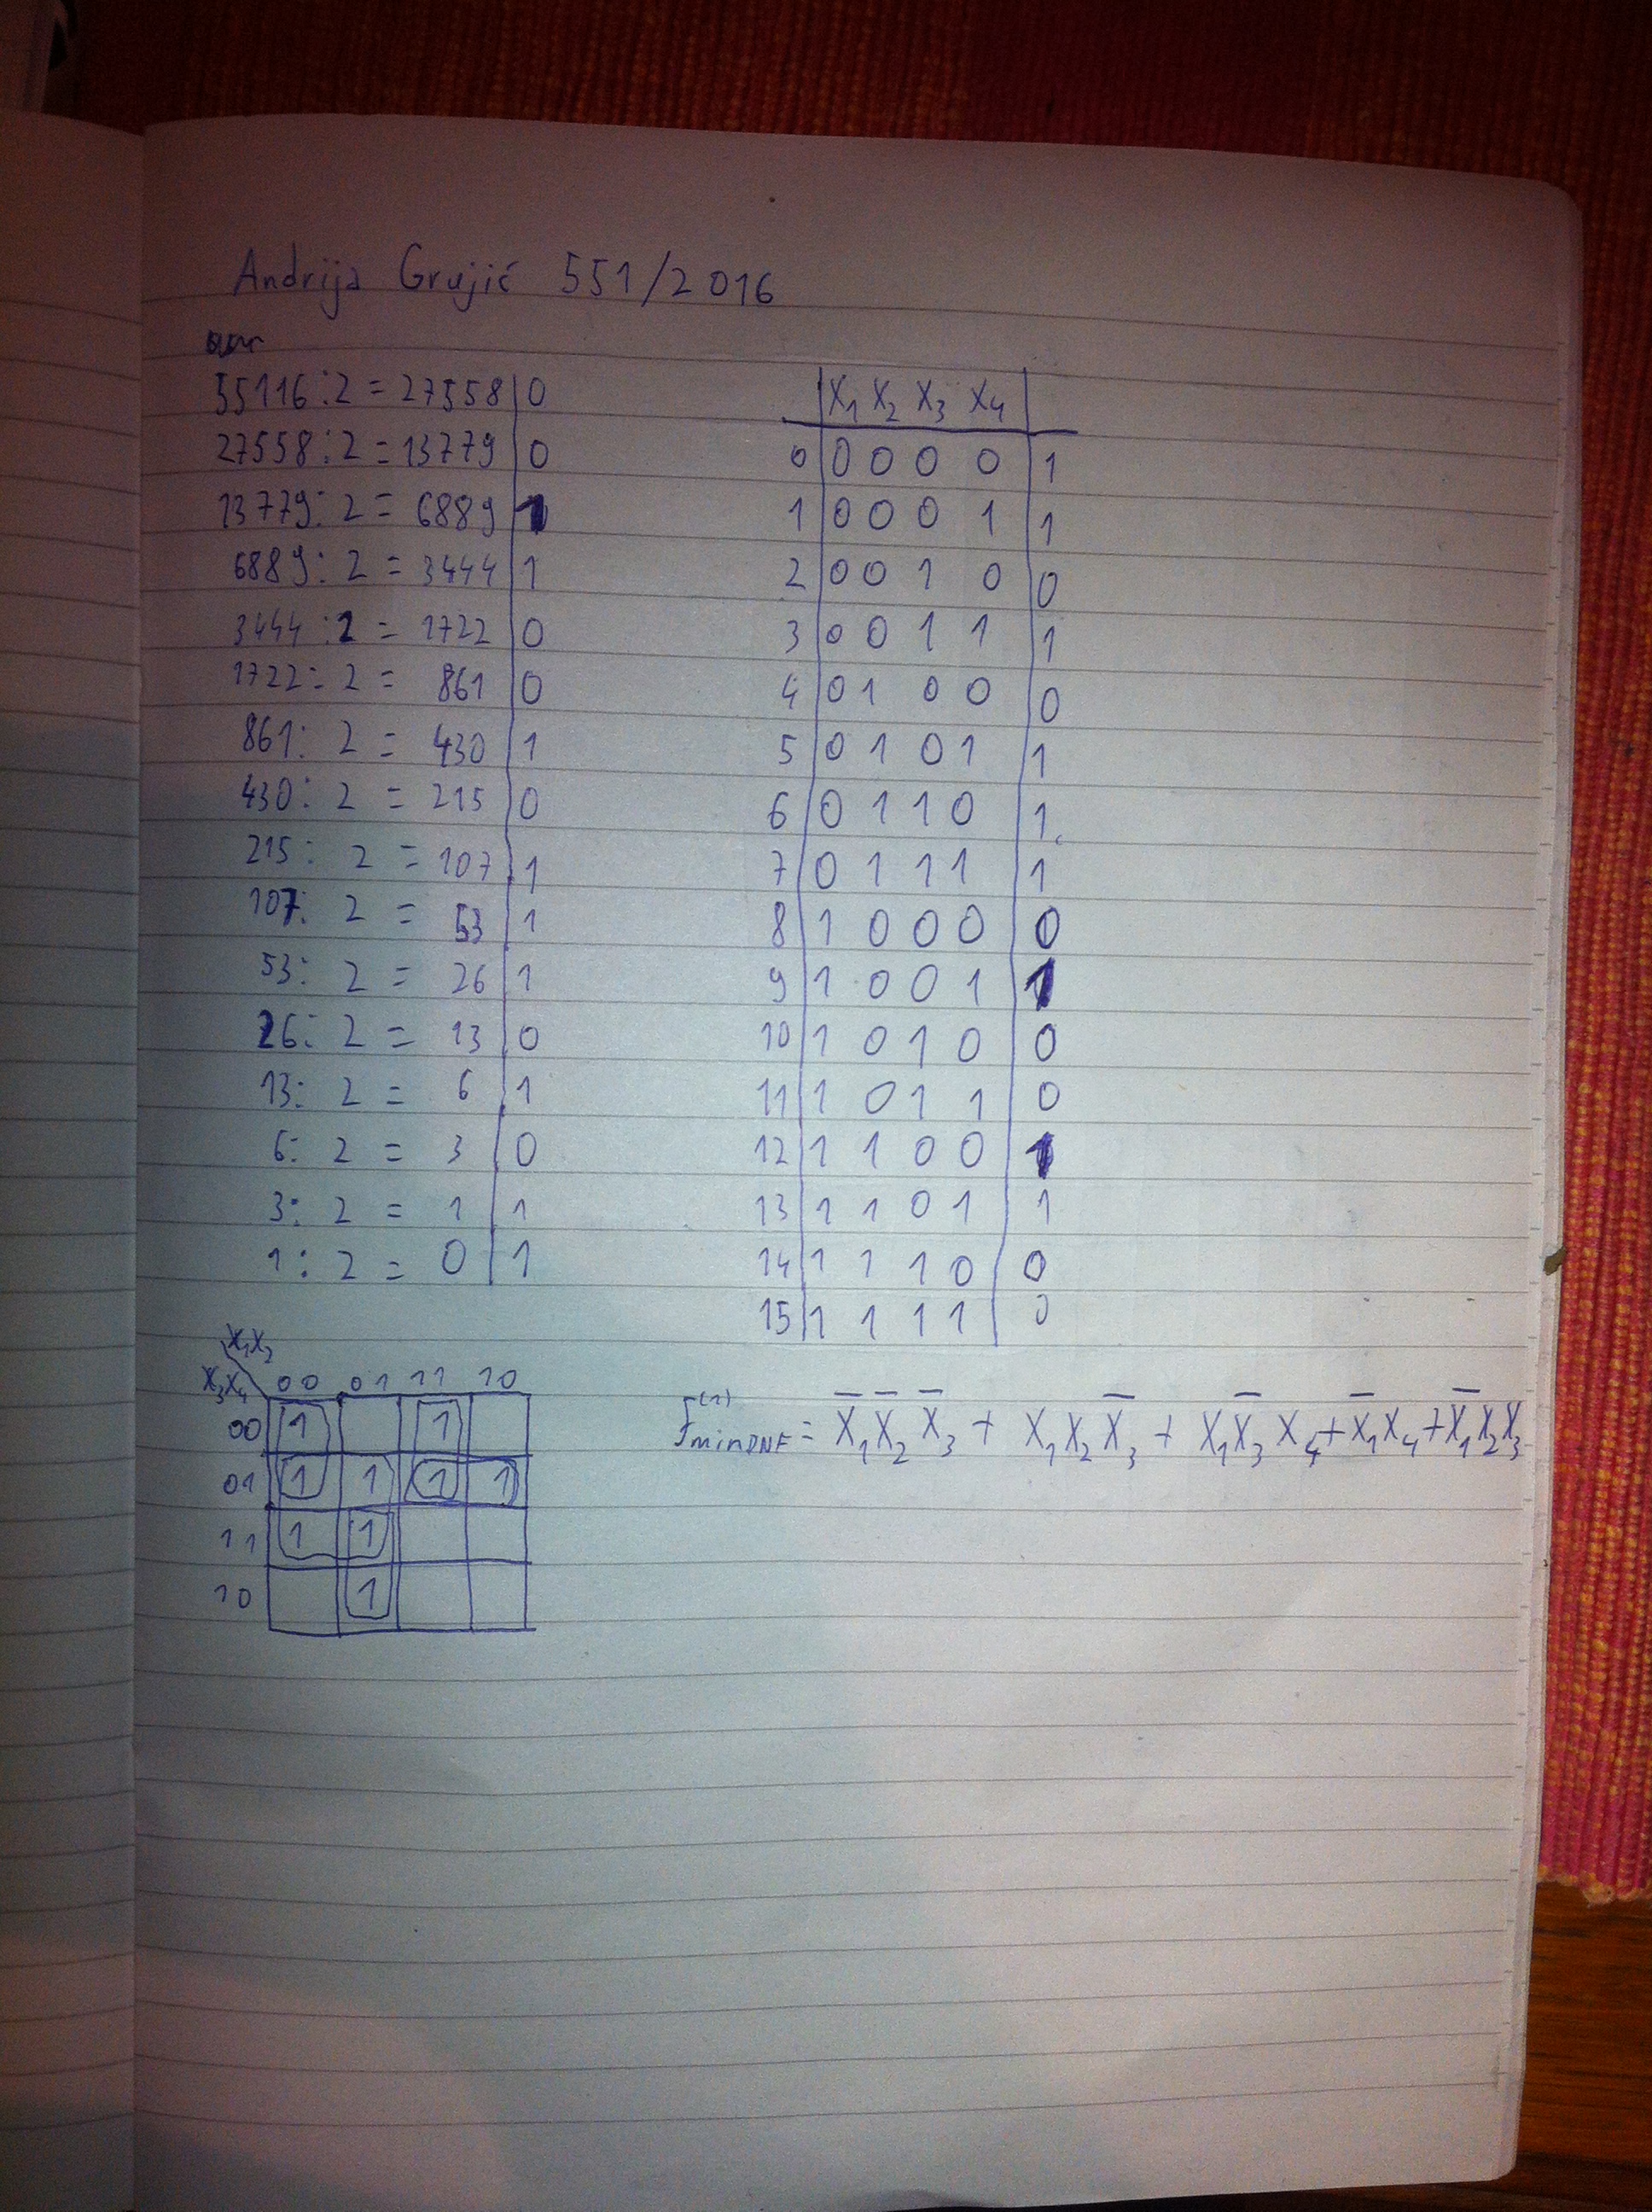 Andrija Grujić 551/2016
55116:2 = 27558|0
27558:2 = 13779|0
13779:2 = 6889|1
6889:2 = 3444|1
3444:2 = 1722|0
1722:2 = 861|0
861:2 = 430|1
430:2 = 215|0
215:2 = 107|1
107:2 = 53|1
53:2 = 26|1
26:2 = 13|0
13:2 = 6|1
6:2 = 3|0
3:2 = 1|1
1:2 = 0|1
|X₁ X₂ X₃ X₄|
0|0 0 0 0|1
1|0 0 0 1|1
2|0 0 1 0|0
3|0 0 1 1|1
4|0 1 0 0|0
5|0 1 0 1|1
6|0 1 1 0|1
7|0 1 1 1|1
8|1 0 0 0|0
9|1 0 0 1|1
10|1 0 1 0|0
11|1 0 1 1|0
12|1 1 0 0|1
13|1 1 0 1|1
14|1 1 1 0|0
15|1 1 1 1|0
X₁X₂
X₃X₄ 00 01 11 10
00 1 1
01 1 1 1 1
11 1 1
10 1
f⁽¹⁾minDNF = X̅₁X̅₂X̅₃ + X₁X₂X̅₃ + X₁X̅₃X₄ + X̅₁X₄ + X̅₁X₂X₃